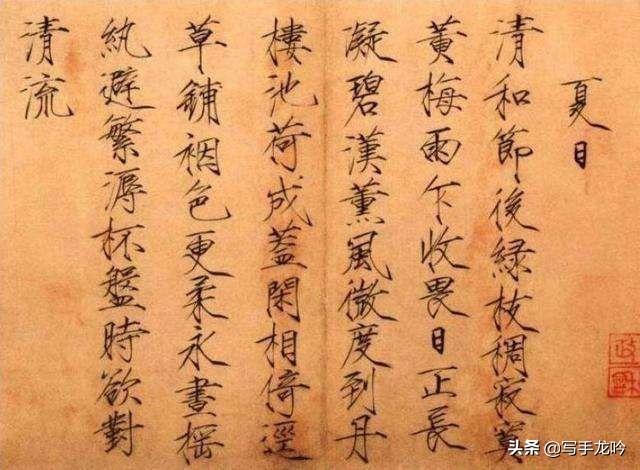 夏日
清和節後緑枝稠寂寞
黄梅雨乍收畏日正長
凝碧漢薫風微度到丹
樓池荷成蓋閑相倚逕
草鋪裀色更柔永晝摇
紈避繁溽杯盤時欲對
清流
头条 @写手龙吟